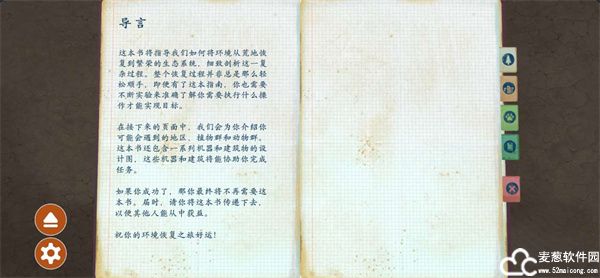 导言
这本书将指导我们如何将环境从荒地恢
复到繁荣的生态系统，细致剖析这一复
杂过程。整个恢复过程并非总是那么轻
松顺手，即便有了这本指南，你也需要
不断实验来准确了解你需要执行什么操
作才能实现目标。
在接下来的页面中，我们会为你介绍你
可能会遇到的地区、植物群和动物群。
这本书还包含一系列机器和建筑物的设
计图，这些机器和建筑将能协助你完成
任务。
如果你成功了，那你最终将不再需要这
本书。届时，请你将这本书传递下去，
以便其他人能从中获益。
祝你的环境恢复之旅好运！
麦葱软件园
www.52maicong.com